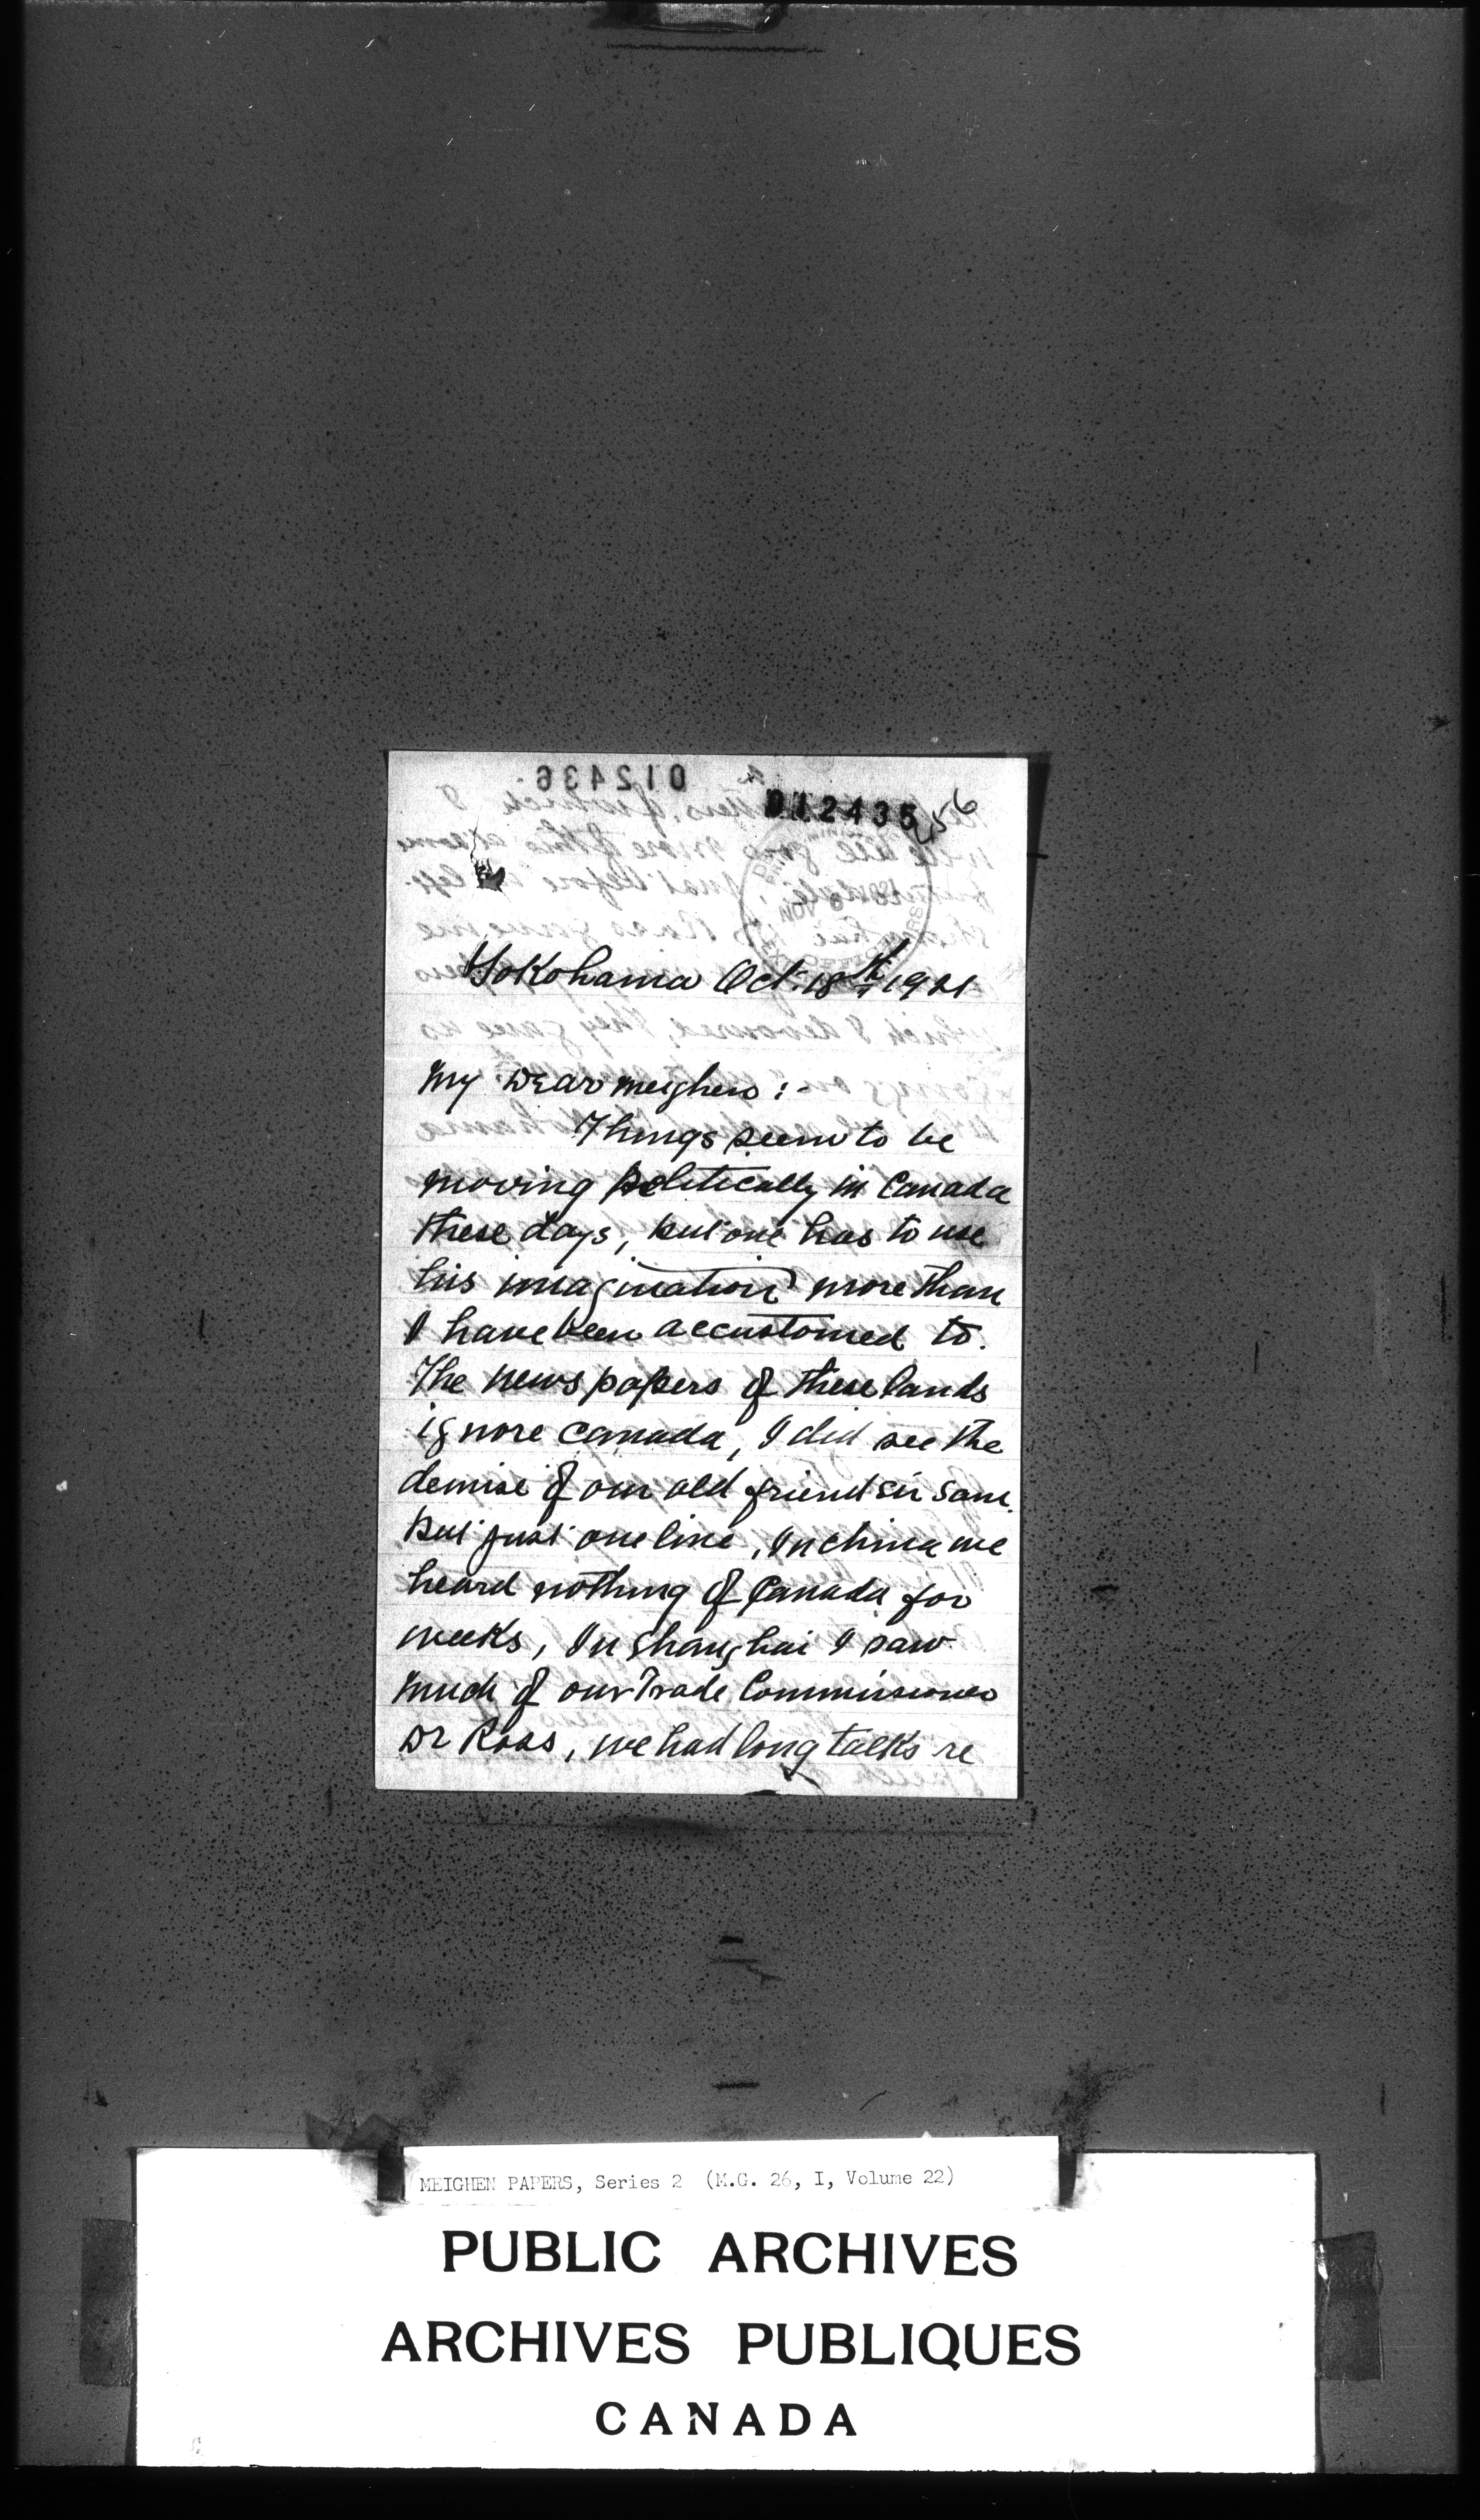 012435
Yokohama Oct. 18th 1921
My Dear Meighen :-
Things seem to be
moving politically in Canada
these days, but one has to use
his imagination more than
I have been accustomed to.
The newspapers of these lands
ignore Canada, I did see the
demise of our old friend Sir Sam.
but just one line, In China we
heard nothing of Canada for
weeks, In Shanghai I saw
much of our Trade Commissioner
Dr Ross, we had long talks re
MEIGHEN PAPERS, Series 2 (M.G. 26, I, Volume 22)
PUBLIC ARCHIVES
ARCHIVES PUBLIQUES
CANADA